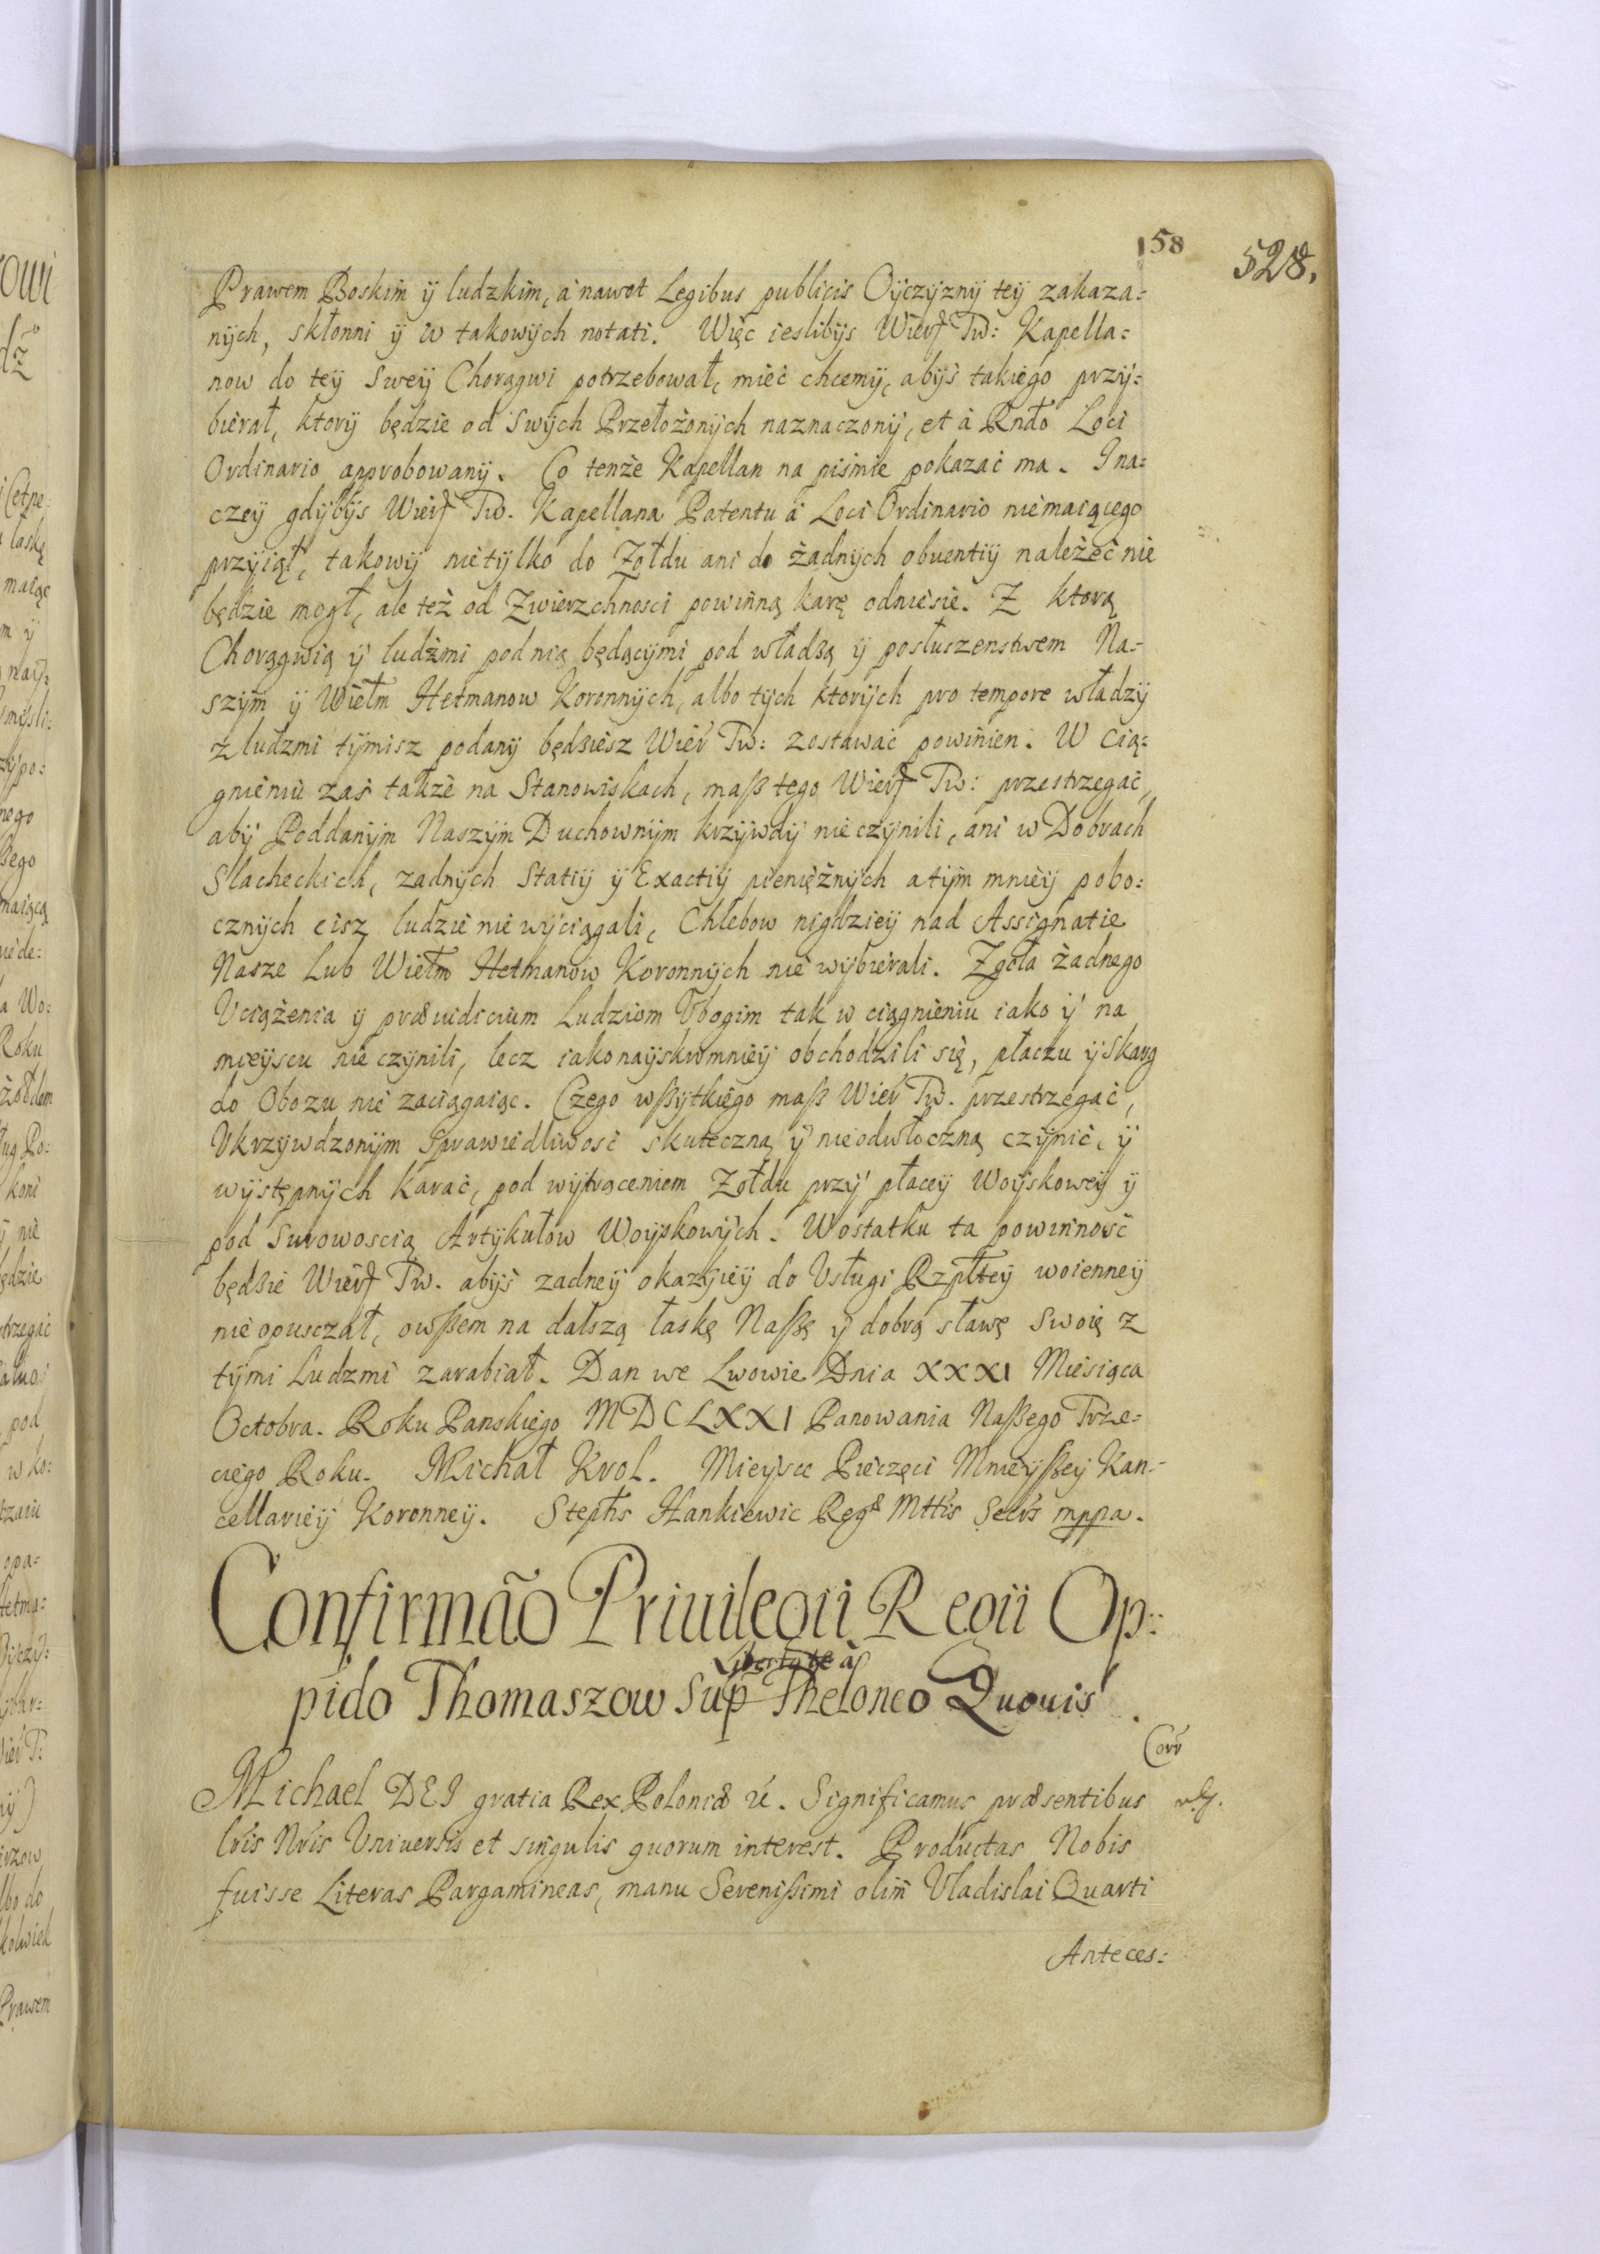 158
528.
Prawem Boskim ÿ ludzkim, à nawet Legibus publicis Oÿczÿznÿ teÿ zakaza=
nÿch, skłonni ÿ w takowÿch notati. Więc ieslibÿs Wierź Tw: Kapella=
now do teÿ Sweÿ Chorągwi potrzebował, mieć chcemÿ, abÿś takiego przÿ=
bierał, ktorÿ będzie od Swÿch Przełożonÿch naznaczonÿ, et à Rndo Loci
Ordinario approbowanÿ. Co tenże Kapellan na piśmie pokazać ma. Ina=
czeÿ gdÿbÿs Wierź Tw. Kapellana Patentu à Loci Ordinario niemaiącego
przÿiął, takowÿ nietÿlko do Żołdu ani do żadnÿch obuentiÿ należeć nie
będzie mogł, ale też od Zwierzchnosci powinną karę odniesie. Z ktorą
Chorągwią ÿ ludźmi pod nią będącÿmi pod władzą ÿ posłuszenstwem Na=
szÿm ÿ Wielm Hetmanow Koronnÿch, albo tÿch ktorÿch pro tempore władzÿ
z ludzmi tÿmisz podanÿ będziesz Wier Tw: zostawać powinien. W cią=
gnieniu zaś także na Stanowiskach, maß tego Wierź Tw: przestrzegać,
abÿ Poddanÿm Naszÿm Duchownÿm krzÿwdÿ nie czÿnili, ani w Dobrach
Slacheckich, zadnÿch Statiÿ ÿ Exactiÿ pieniężnÿch a tÿm mnieÿ pobo=
cznÿch cisz ludzie nie wÿciągali, Chlebow nigdzieÿ nad Assignatie
Nasze Lub Wielm Hetmanow Koronnÿch nie wÿbierali. Zgoła żadnego
Vciążenia ÿ præiudicium Ludziom Vbogim tak w ciągnieniu iako ÿ na
mieÿscu nie czÿnili, lecz iako naÿskromnieÿ obchodzili się, płaczu ÿ Skarg
do Obozu nie zaciągaiąc. Czego wßÿtkiego maß Wier Tw. przestrzegać,
Vkrzÿwdzonÿm Sprawiedliwość skuteczną ÿ nieodwłoczną czÿnić, ÿ
wÿstępnÿch karać, pod wÿtrąceniem Żołdu przÿ płaceÿ Woÿskoweÿ ÿ
pod Surowoscią Artÿkułow Woÿskowÿch. W ostatku ta powinność
będzie Wierź Tw. abÿś zadneÿ okaziÿeÿ do Vsługi Rzpłteÿ woienneÿ
nie opusczał, owßem na dalszą łaskę Naßę ÿ dobrą sławę swoię z
tÿmi Ludzmi zarabiał. Dan we Lwowie Dnia XXXI Miesiąca
Octobra. Roku Panskiego MDCLXXI Panowania Naßego Trze=
ciego Roku. Michał Krol. Mieÿsce Pieczęci Mnieÿßeÿ Kan=
cellarieÿ Koronneÿ. Stephs Hankiewic Regæ Mttis Secrs mppa.
Confirmão Priuilegii Regii Op=
pido Thomaszow Sup Libertate à Theloneo Quouis.
Michael DEI gratia Rex Poloniæ &. Significamus præsentibus
lris Nris Vniuersis et singulis quorum interest. Productas Nobis
fuisse Literas Pargamineas, manu Serenißimi olim Vladislai Quarti
Corr
Anteces: